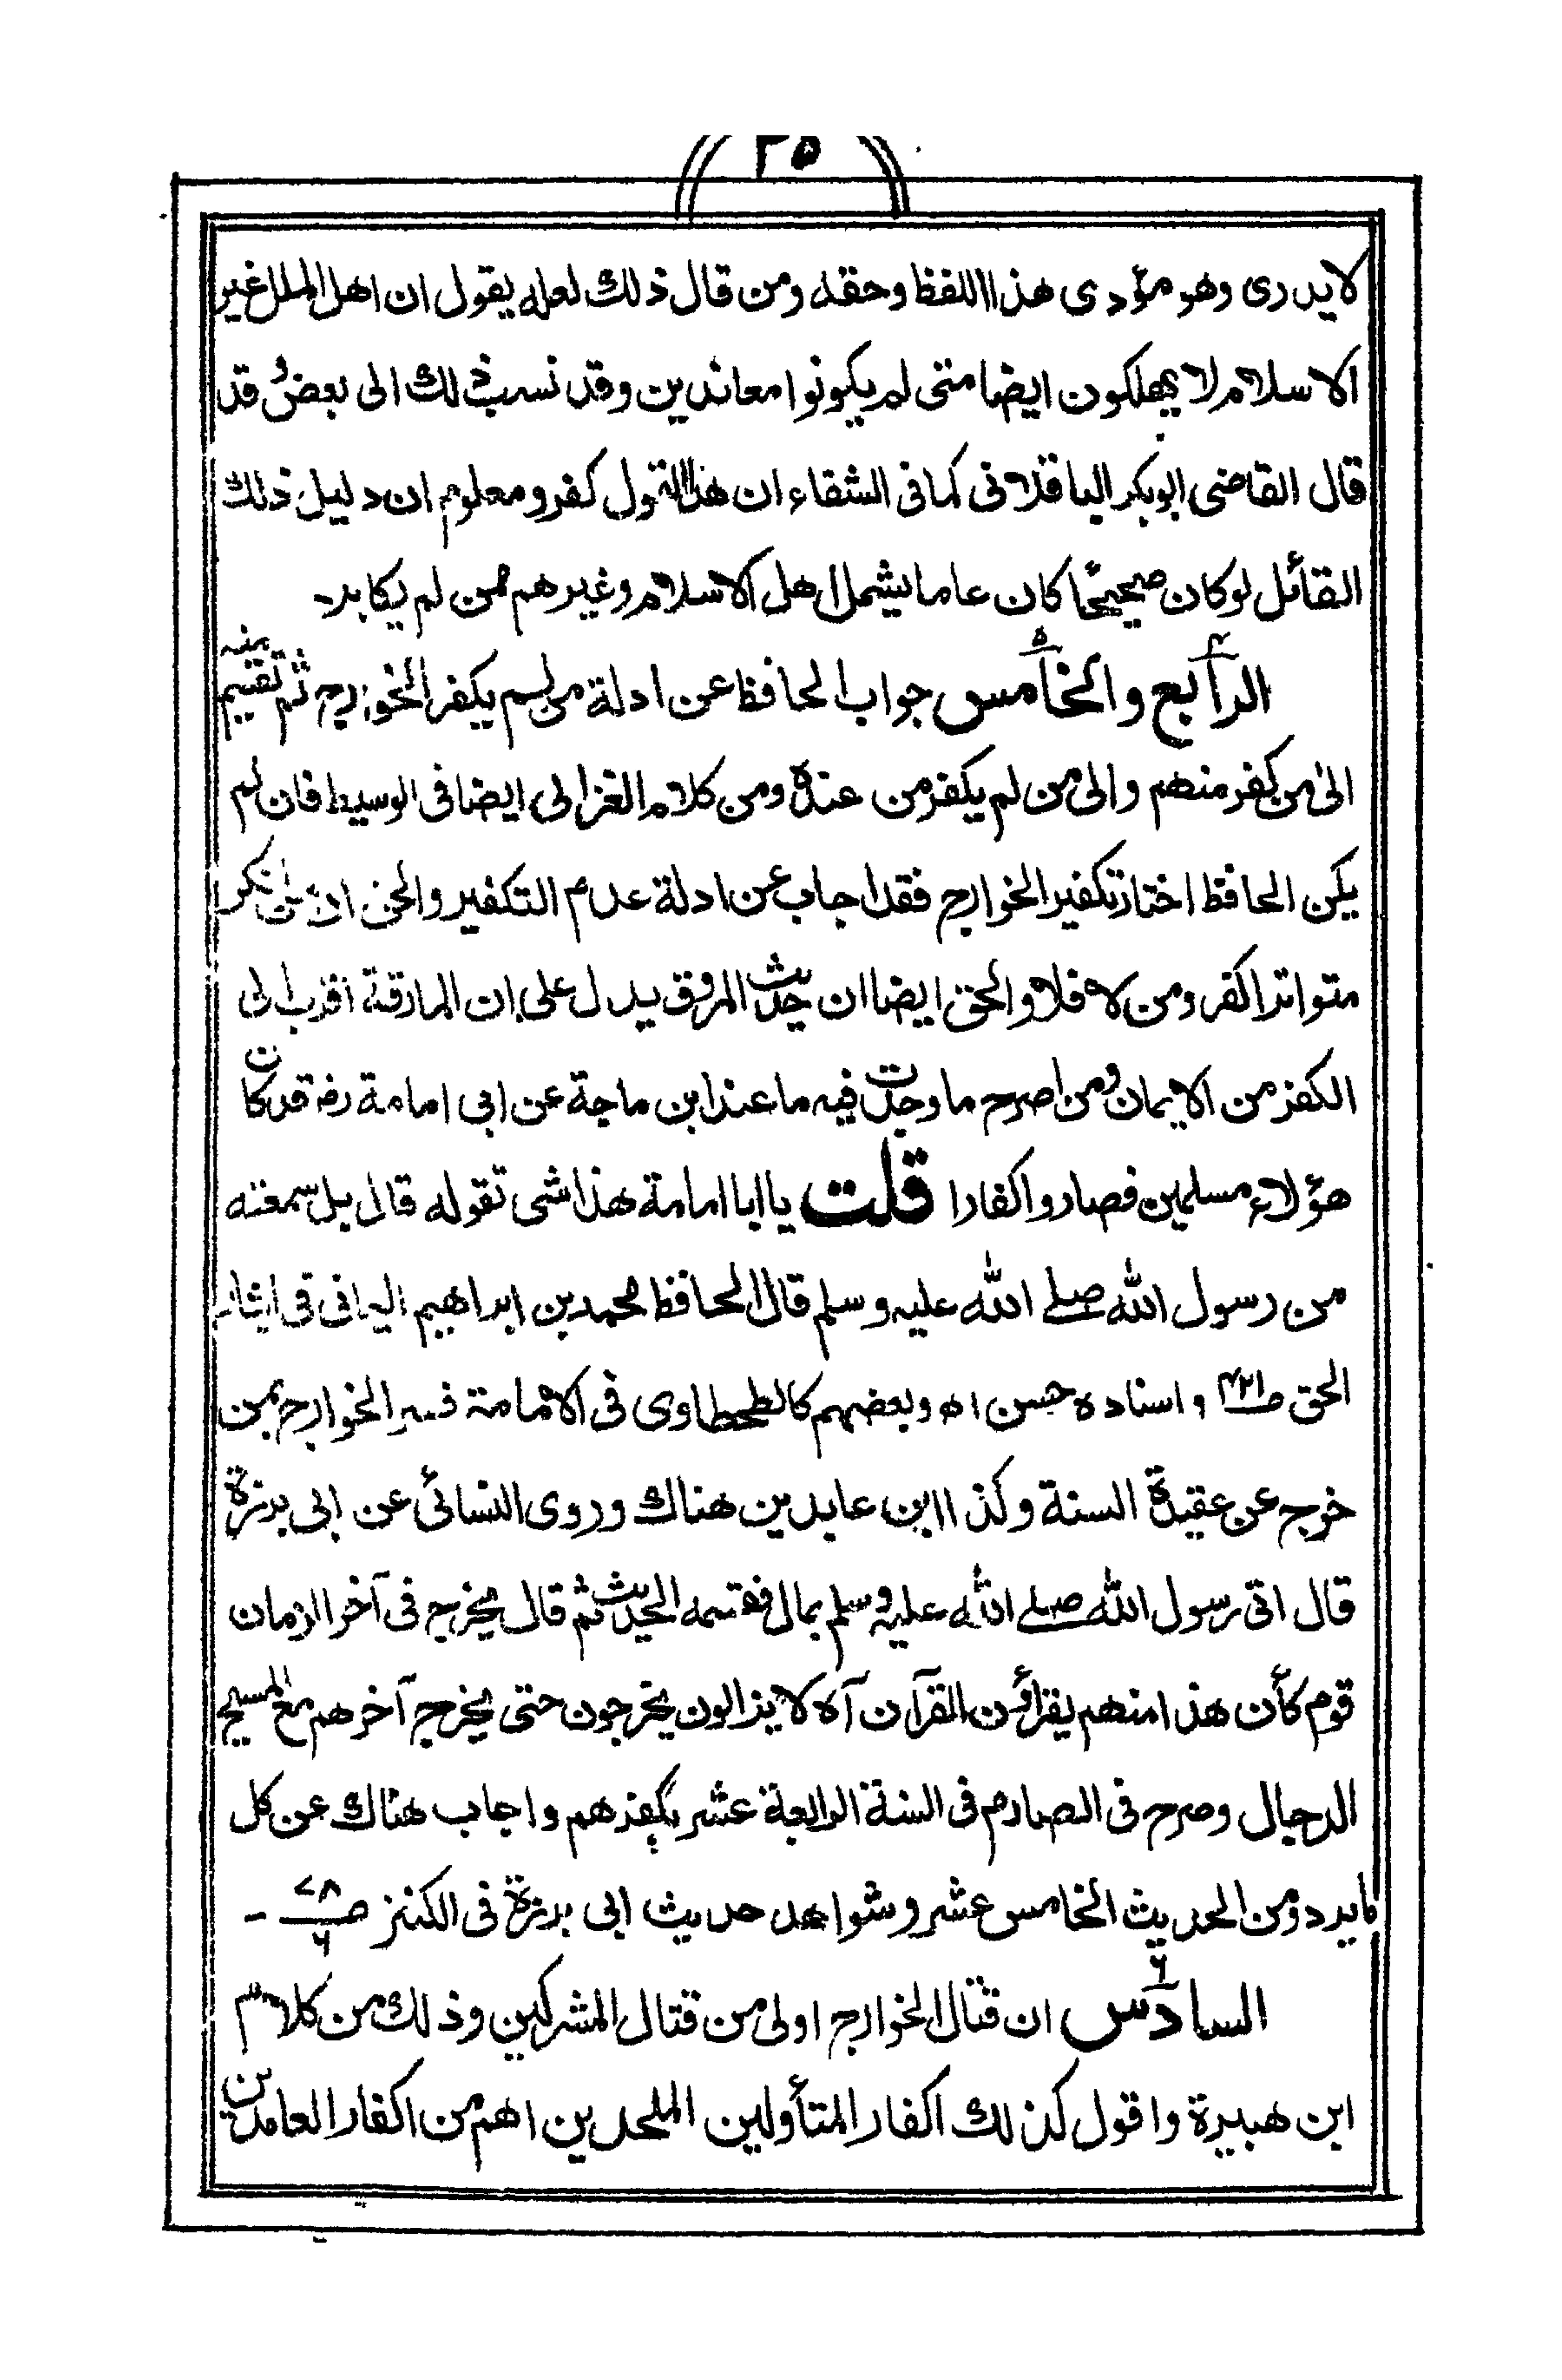 ٢٥
لا يدرى وهو مؤدى هذا اللفظ وحقه ومن قال ذلك لعله يقول ان اهل الملل غير
الاسلام لا يهلكون ايضا متى لم يكونوا معاندين وقد نسب ذلك الى بعض و قد
قال القاضى ابوبكر الباقلانى كما فى الشفاء ان هذا القول كفر ومعلوم ان دليل ذلك
القائل لو كان صحيحًا كان عاما يشمل اهل الاسلام وغيرهم ممن لم يكابر۔
الرابع ٤ والخامس ٥ جواب الحافظ عن ادلة من لم يكفر الخوارج ثم تقسيم منه
الىٰ من كفر منهم والى من لم يكفر من عنده ومن كلام الغزالى ايضا فى الوسيط فان لم
يكن الحافظ اختار تكفير الخوارج فقد اجاب عن ادلة عدم التكفير والحق ان من انكر
متواترا كفر ومن لا فلا والحق ايضا ان حديث المروق يدل على ان المارقة اقرب الى
الكفر من الايمان ومن اصرح ما وجدت فيه ما عند ابن ماجة عن ابى امامة رضـ قد كان
هؤلاء مسلمين فصاروا كفارا قلت يا ابا امامة هذا شئ تقوله قال بل سمعته
من رسول الله صلے الله عليه وسلم قال الحافظ محمد بن ابراهيم اليمانى فى ايثار
الحق صـ٤٢١ واسناده حسن اه وبعضهم كالطحطاوى فى الامامة فسر الخوارج بمن
خرج عن عقيدة السنة وكذا ابن عابدين هناك وروى النسائى عن ابى برزة
قال اتى رسول الله صلے الله عليه وسلم بمال فقسمه الحديث ثم قال يخرج فى آخر الزمان
قوم كأن هذا منهم يقرأون القرآن آه لا يزالون يخرجون حتى يخرج آخرهم مع المسيح
الدجال وصرح فى الصارم فى السنة الرابعة عشر بكفرهم واجاب هناك عن كل
ما يرد ومن الحديث الخامس عشر وشواهد حديث ابى برزة فى الكنز صـ ٧٨ / ٦ ۔
السادس ٦ ان قتال الخوارج اولى من قتال المشركين وذلك من كلام
ابن هبيرة واقول كذلك اكفار المتأولين الملحدين اهم من اكفار العامدين